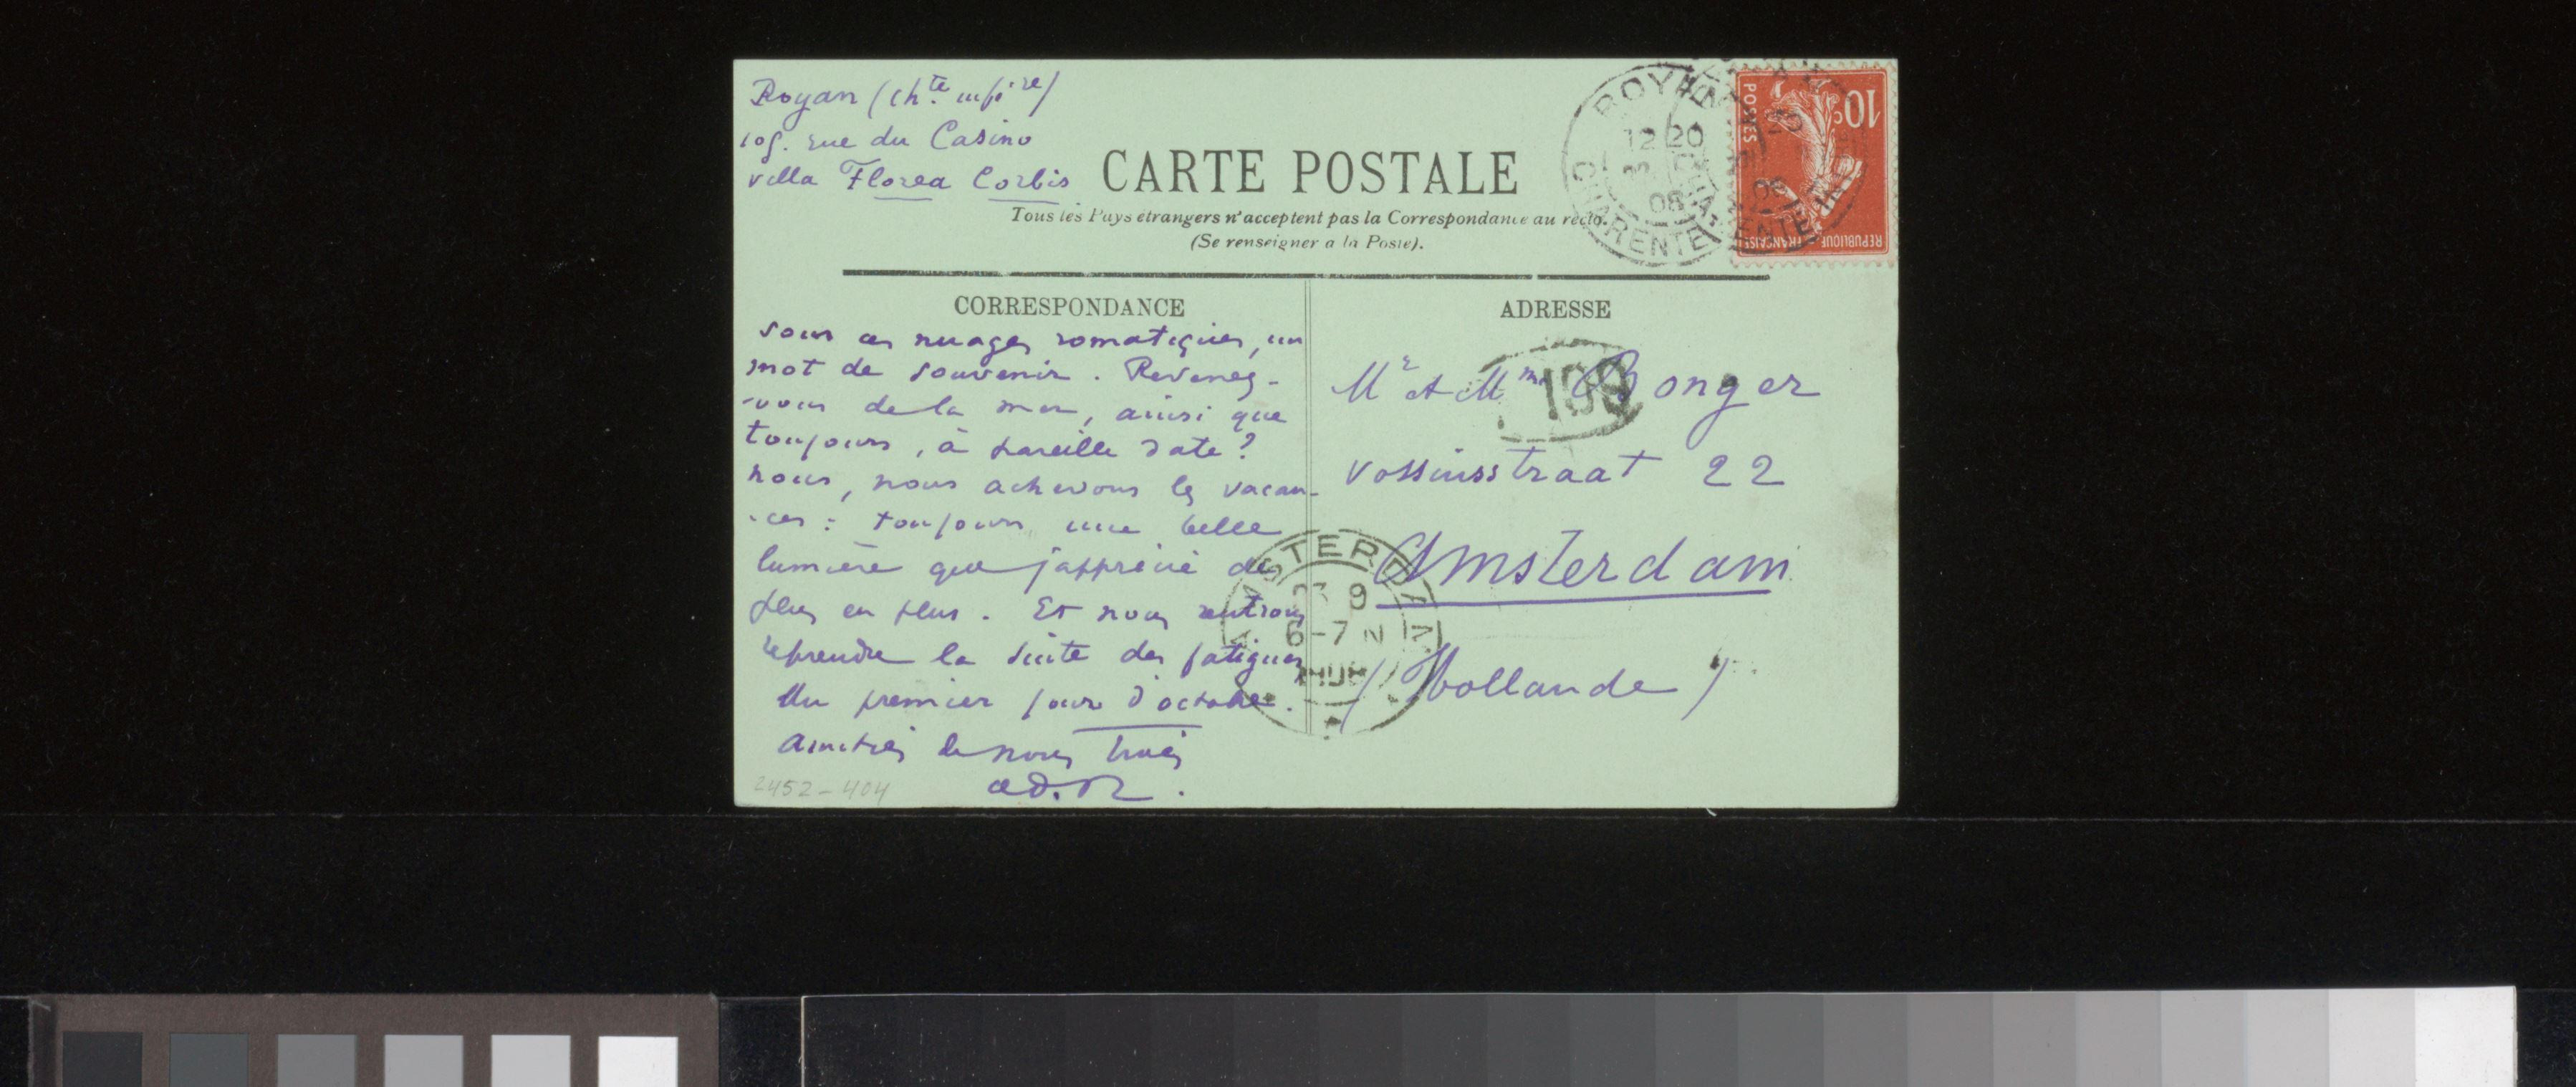 Royan (Chte infre)
109. rue du Casino
villa Florea Corbis
CARTE POSTALE
Tous les Pays étrangers n'acceptent pas la Correspondance au recto.
(Se renseigner a la Poste).
ROYAN
12 20
08
CHARENTE
10c
POSTES
REPUBLIQUE FRANÇAISE
CORRESPONDANCE
Sous ces nuages romatiques, un
mot de souvenir. Revenez-
-vous de la mer, ainsi que
toujours, à pareille date?
nous, nous achevons les vacan-
-ces : toujours une belle
lumière que j'apprécie de
plus en plus. Et nous rentrons
reprendre la suite des fatigues
du premier jour d'octobre.
Amitiés de nous trois
od. R.
2452-404
ADRESSE
109
Mr et Mme Bonger
Vossiusstraat 22
Amsterdam
(Hollande)
AMSTERDAM
23 9
6-7 N